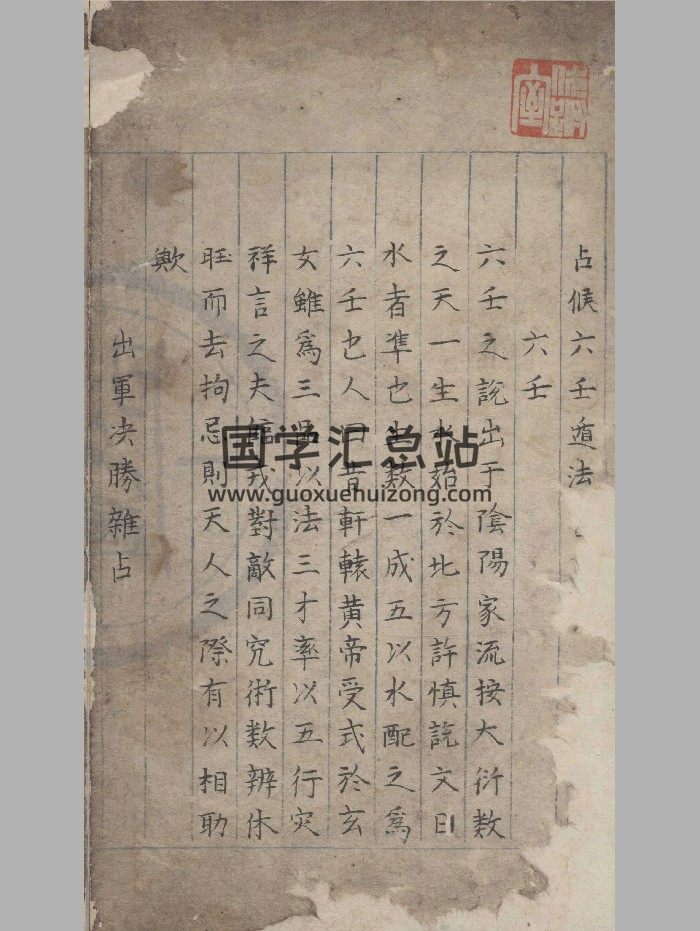 占候六壬遁法
六壬
六壬之說出于陰陽家流按大衍數
之天一生水始於北方許慎說文曰
水者準也生数一成五以水配之為
六壬也人曰昔軒轅黄帝受式於玄
女雖爲三以法三才率以五行灾
祥言之夫臨戎對敵同究術数辨休
旺而去拘忌則天人之際有以相助
歟
出軍决勝雜占
国学汇总站
www.guoxuehuizong.com